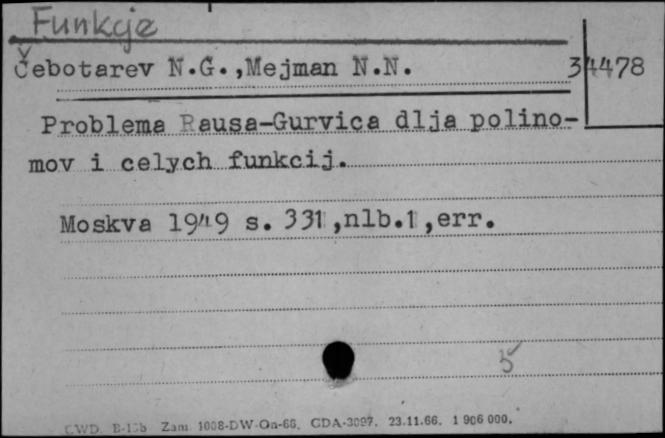 Funkcje
Čebotarev N.G.,Mejman N.N. 34478
Problema Rausa-Gurvica dlja polino-
mov i celych funkcij.
Moskva 1949 s. 331 ,nlb.1 ,err.
5
CWD. Zam. 1008-DW-On-66. CDA-3097. 23.11.66. 1 906 000.